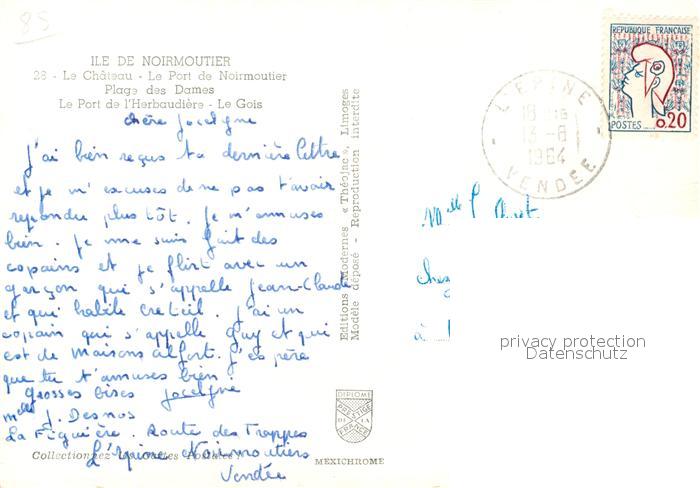 85
ILE DE NOIRMOUTIER
28 - Le Château - Le Port de Noirmoutier
Plage des Dames
Le Port de l'Herbaudière - Le Gois
chère Jocelyne
J'ai bien reçus ta dernière lettre
et je m'excuses de ne pas t'avoir
repondu plus tôt. Je m'amuses
bien. Je me suis fait des
copains et je flirt avec un
garçon qui s'appelle Jean-Claude
et qui habite Creteil. J'ai un
copain qui s'appelle Guy et qui
est de Maisons Alfort. J'espère
que tu t'amuses bien.
Grosses bises Jocelyne
Melle J. Desnos
La Figuière. Route des Trappes
L'Epine Noirmoutiers
Vendée
Collectionnez les Cartes Postales !
Editions Modernes « Théojac », Limoges
Modèle déposé - Reproduction interdite
DIPLOME
PRESTIGE
DE LA
FRANCE
MEXICHROME
L'EPINE
13-8
1964
VENDÉE
REPUBLIQUE FRANÇAISE
POSTES 0.20
Melle
chez
à
privacy protection
Datenschutz